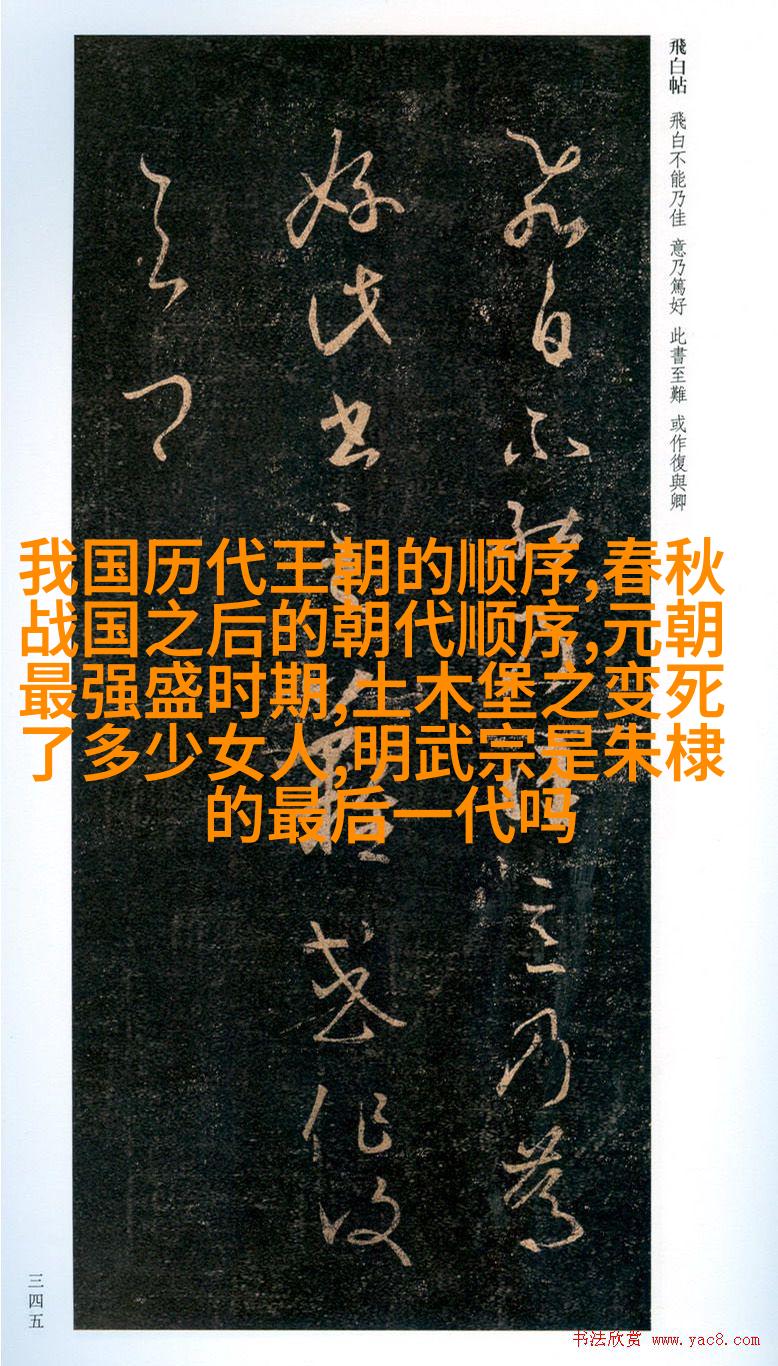 飛白帖 飛白不能乃佳 意乃篤好 此書至難 或作復與卿
飛白不能乃佳意乃篤
好此書至難或作復
與卿
我国历代王朝的顺序,春秋
战国之后的朝代顺序,元朝
最强盛时期,土木堡之变死
了多少女人,明武宗是朱棣
的最后一代吗
三四五
书法欣赏 www.yac8.com